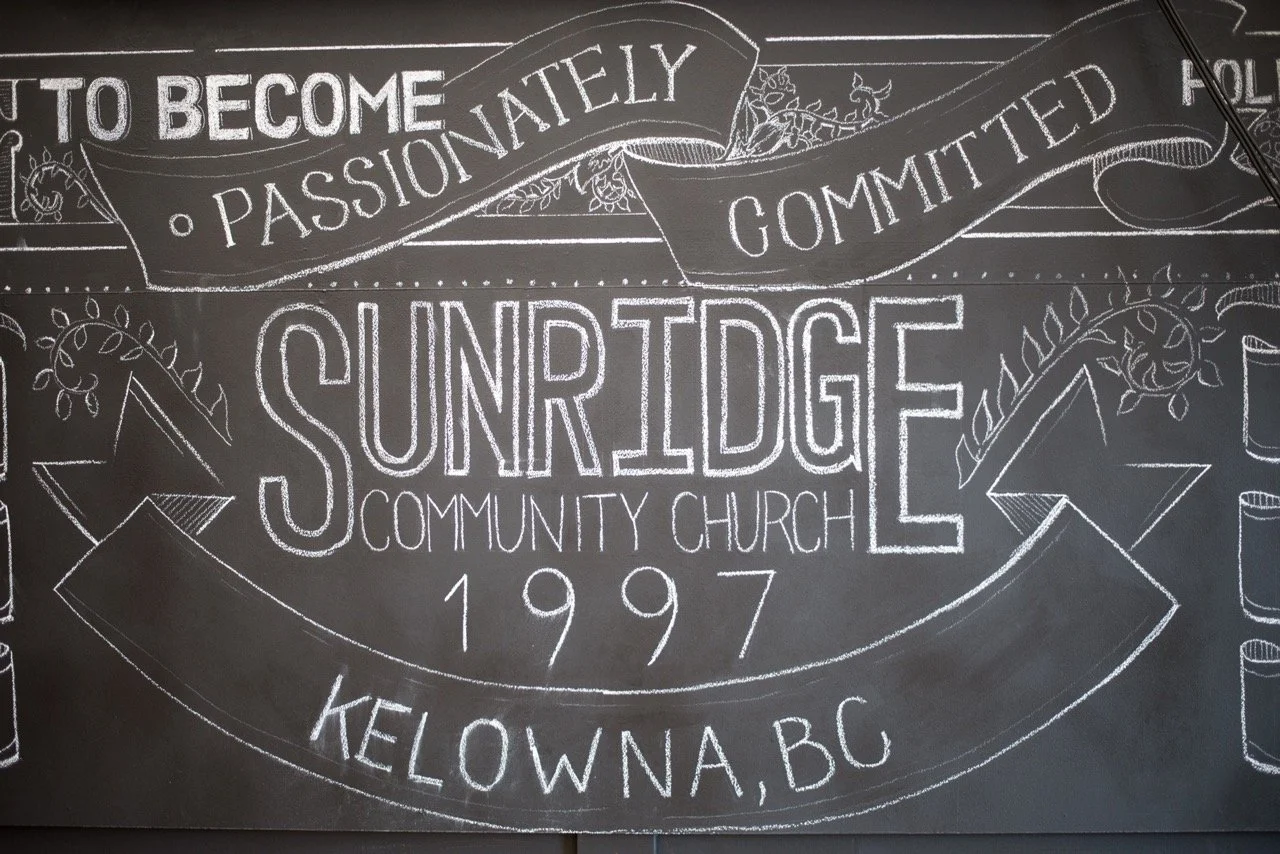 TO BECOME
PASSIONATELY
COMMITTED
SUNRIDGE
COMMUNITY CHURCH
1997
KELOWNA, BC